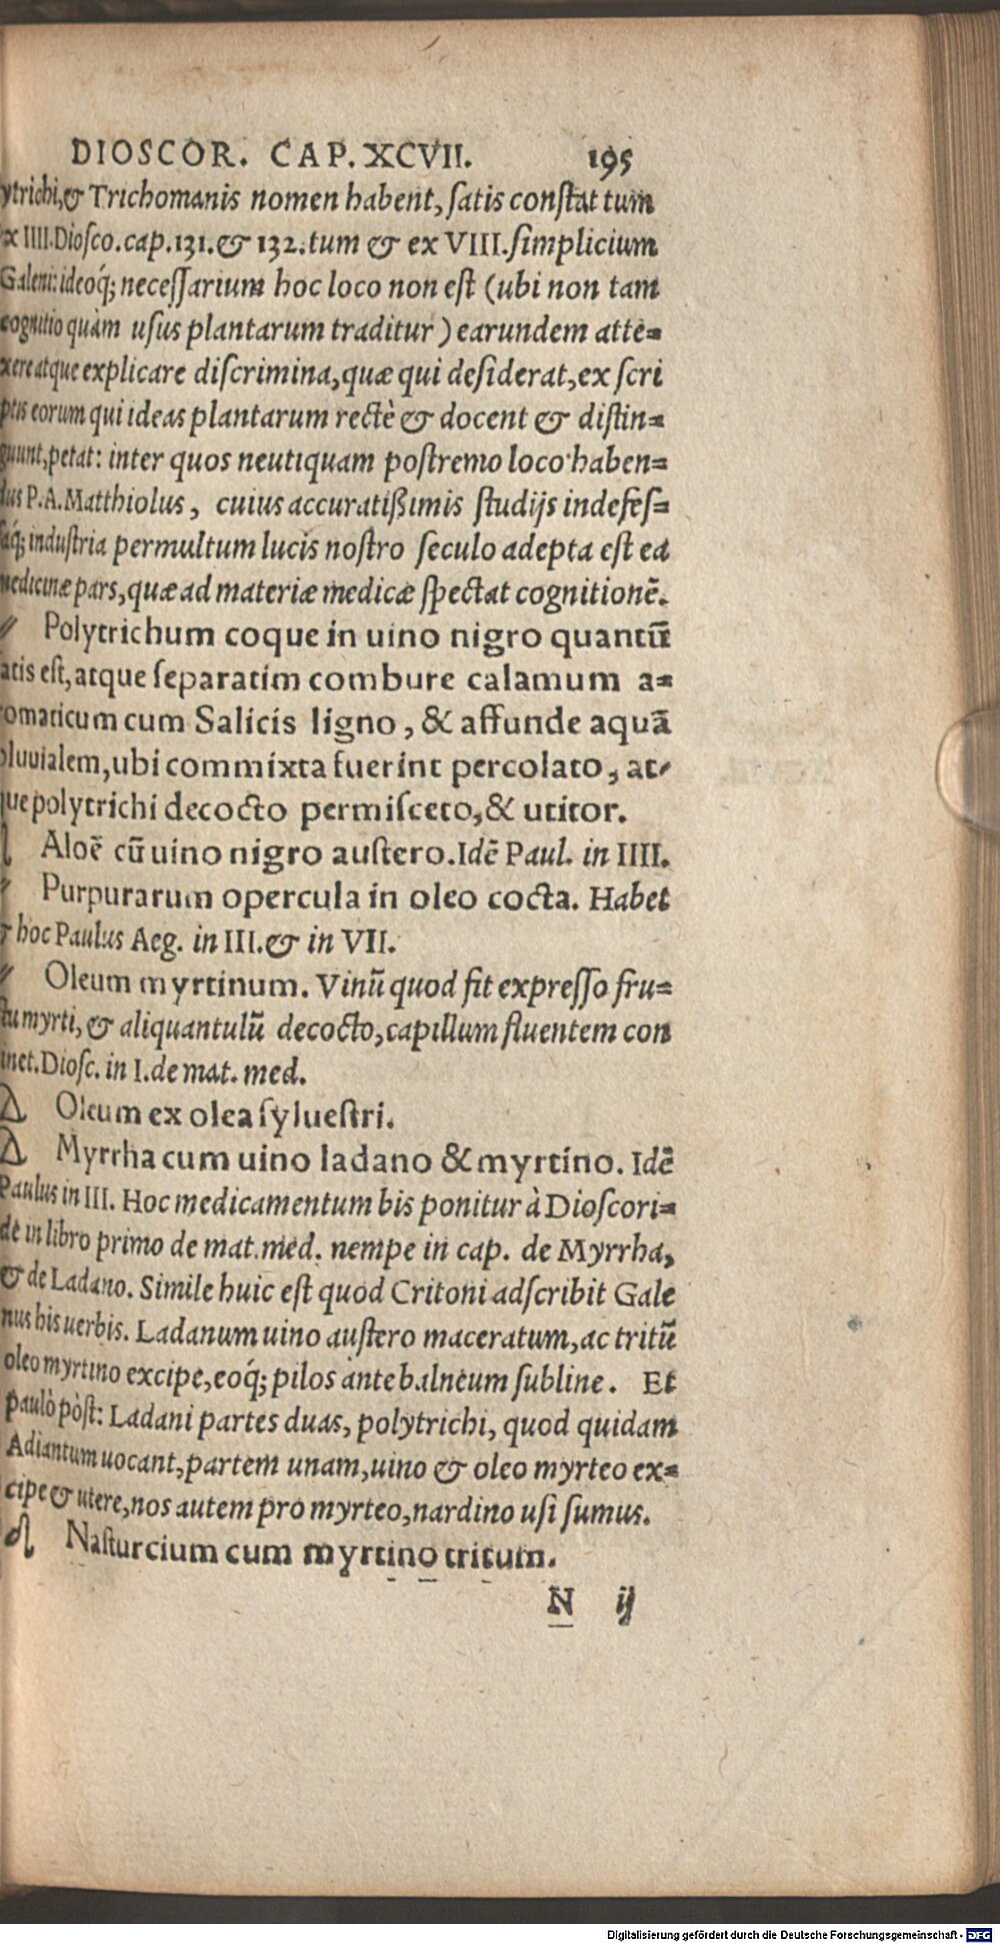 DIOSCOR. CAP. XCVII. 195
ytrichi, & Trichomanis nomen habent, ſatis conſtat tum
x IIII. Dioſco. cap. 131. & 132. tum & ex VIII. ſimplicium
Galeni: ideoq́; neceſſarium hoc loco non eſt (ubi non tam
cognitio quàm uſus plantarum traditur) earundem atte=
xere atque explicare diſcrimina, quæ qui deſiderat, ex ſcri
ptis eorum qui ideas plantarum rectè & docent & diſtin=
guunt, petat: inter quos neutiquam poſtremo loco haben=
dus P. A. Matthiolus, cuius accuratißimis ſtudijs indefeſ=
ſaq́; induſtria permultum lucis noſtro ſeculo adepta eſt ea
medicinæ pars, quæ ad materiæ medicæ ſpectat cognitionē.
Polytrichum coque in uino nigro quantū
atis eſt, atque ſeparatim combure calamum a=
romaticum cum Salicis ligno, & affunde aquā
pluuialem, ubi commixta fuerint percolato, at-
que polytrichi decocto permiſceto, & utitor.
Aloē cū uino nigro auſtero. Idē Paul. in IIII.
Purpurarum opercula in oleo cocta. Habet
& hoc Paulus Aeg. in III. & in VII.
Oleum myrtinum. Vinū quod fit expreſſo fru=
ctu myrti, & aliquantulū decocto, capillum fluentem con
tinet. Dioſc. in I. de mat. med.
Oleum ex olea ſylueſtri.
Myrrha cum uino ladano & myrtino. Idē
Paulus in III. Hoc medicamentum bis ponitur à Dioſcori=
de in libro primo de mat. med. nempe in cap. de Myrrha,
& de Ladano. Simile huic eſt quod Critoni adſcribit Gale
nus his uerbis. Ladanum uino auſtero maceratum, ac tritū
oleo myrtino excipe, eoq́; pilos ante balneum ſubline. Et
paulò pòſt: Ladani partes duas, polytrichi, quod quidam
Adiantum uocant, partem unam, uino & oleo myrteo ex=
cipe & utere, nos autem pro myrteo, nardino uſi ſumus.
Naſturcium cum myrtino tritum.
N ij
Digitalisierung gefördert durch die Deutsche Forschungsgemeinschaft - DFG